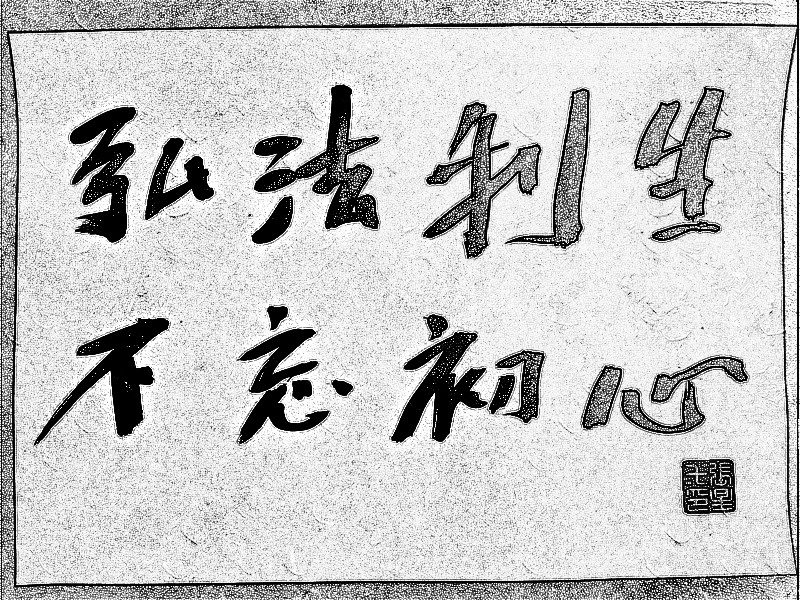 弘法利生
不忘初心